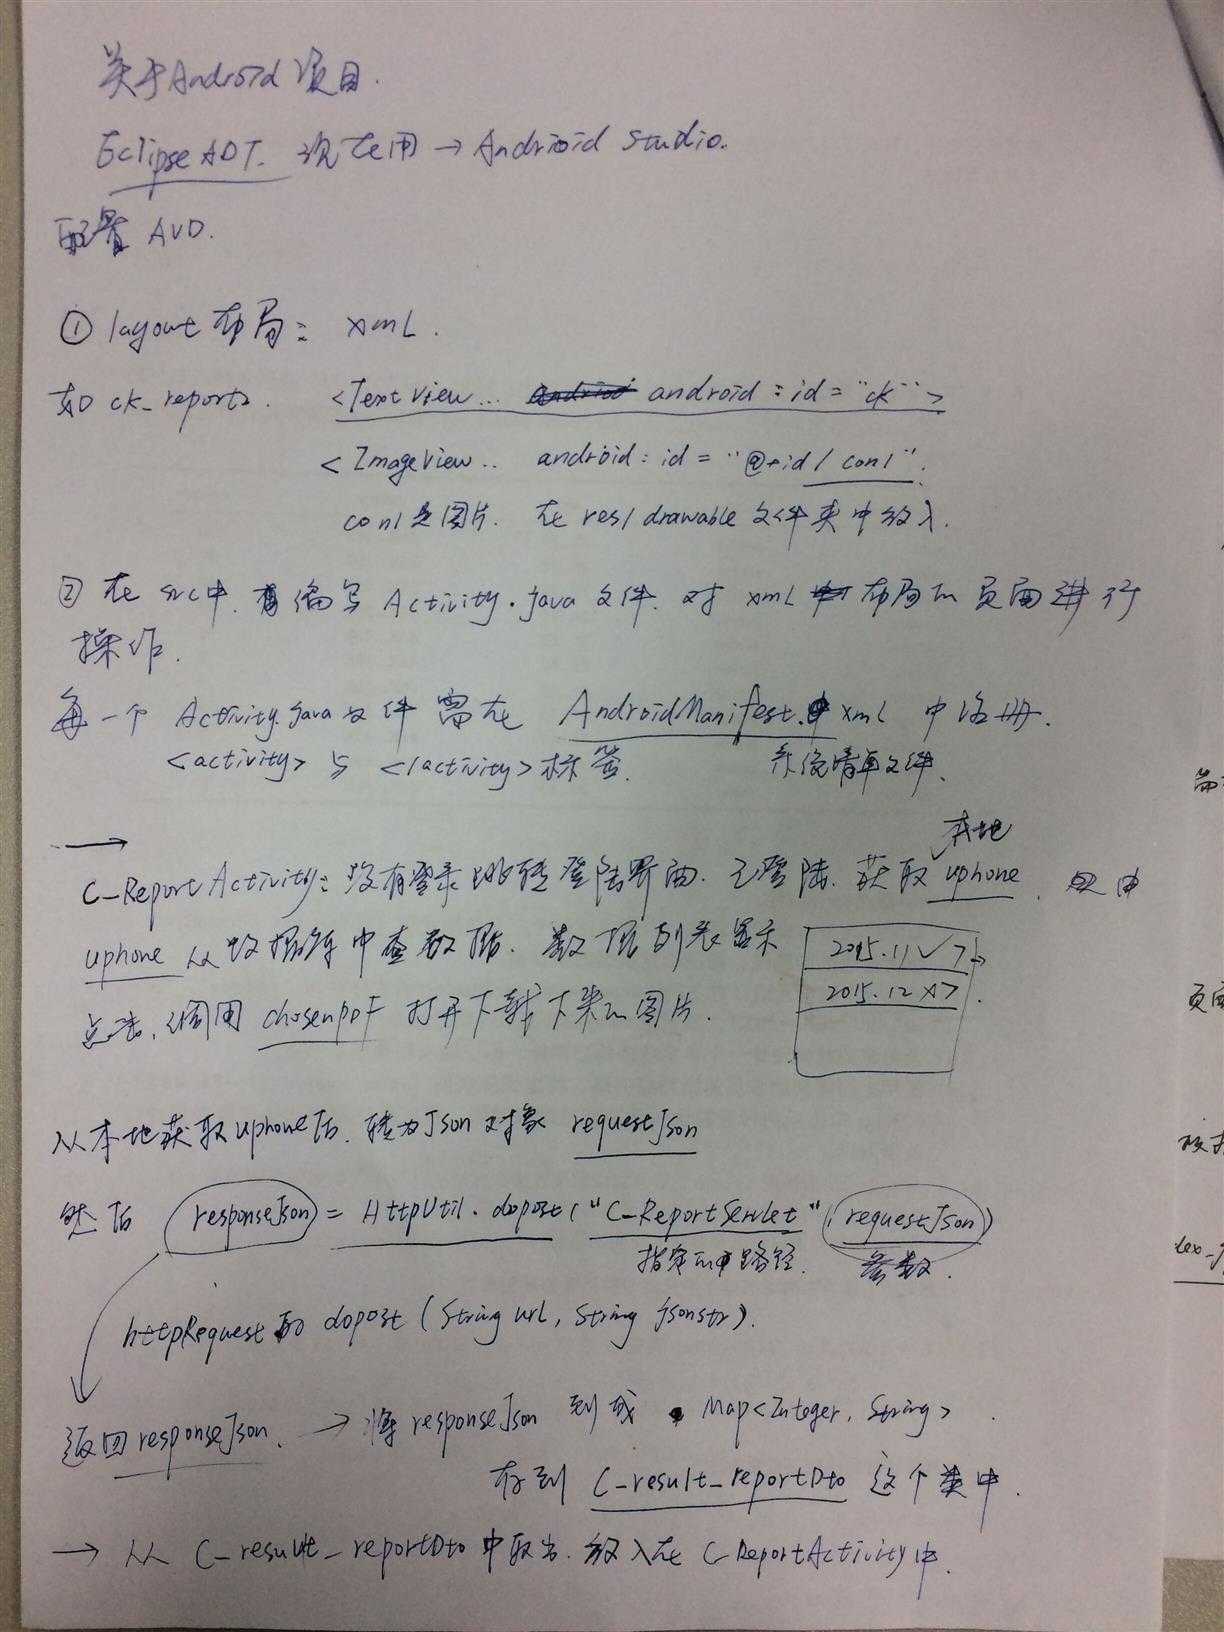 关于Android 项目.
Eclipse ADT. 现在用 → Android Studio.
配置 AVD.
① layout 布局: xml.
如 ck_report. <TextView... android:id="ck">
<ImageView.. android:id="@+id/con1".
con1是图片. 在 res/drawable 文件夹中放入.
② 在 src中. 编写 Activity.java 文件. 对 xml 布局的页面进行
操作.
每一个 Activity.java文件需在 AndroidManifest.xml 中注册.
<activity> 与 </activity>标签. 系统清单文件.
→
本地
C_ReportActivity: 没有登录跳转登陆界面. 已登陆. 获取 uphone. 由
uphone 从数据库中查数据. 数据列表显示
2015.11 ✓ >
2015.12 ×>
点击. 调用 chosenPDF 打开下载下来的图片.
从本地获取uphone后. 转为Json对象 requestJson
然后 responseJson = HttpUtil.dopost("C_ReportServlet", requestJson)
指定的路径. 参数.
httpRequest的 dopost (String url, String jsonstr).
返回 responseJson. → 将 responseJson 到成 Map<Integer, String>
存到 C_result_reportDto 这个类中.
→ 从 C_result_reportDto 中取出. 放入在 C_ReportActivity中.
页面